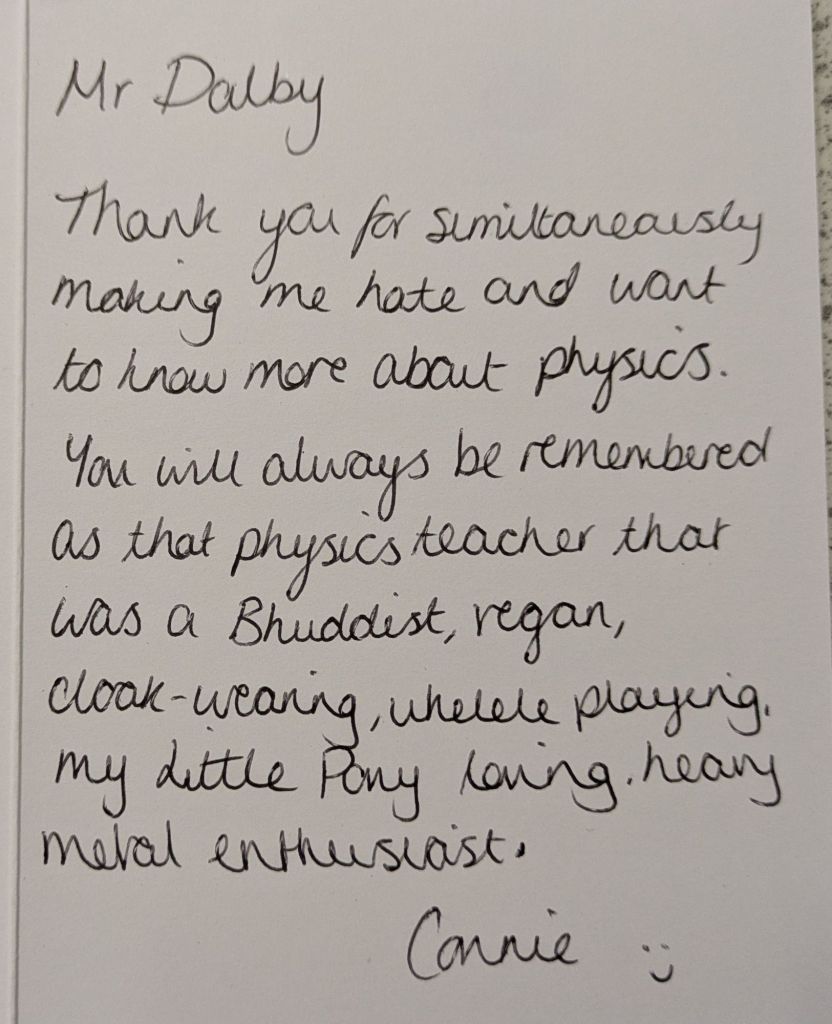 Mr Dalby
Thank you for simultaneously
making me hate and want
to know more about physics.
You will always be remembered
as that physics teacher that
was a Bhuddist, vegan,
cloak-wearing, ukelele playing,
my Little Pony loving, heavy
metal enthusiast.
Connie :)